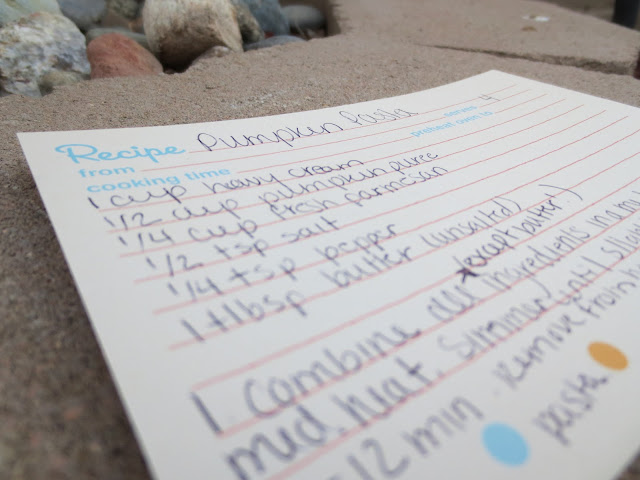 Recipe Pumpkin Pasta serves 4
from preheat oven to
cooking time
1 cup heavy cream
1/2 cup pumpkin puree
1/4 cup fresh parmesan
1/2 tsp salt
1/4 tsp pepper
1 tlbsp butter (unsalted)
*(except butter!)
1. Combine all ingredients in a
med. heat. Simmer until
12 min. Remove from
pasta